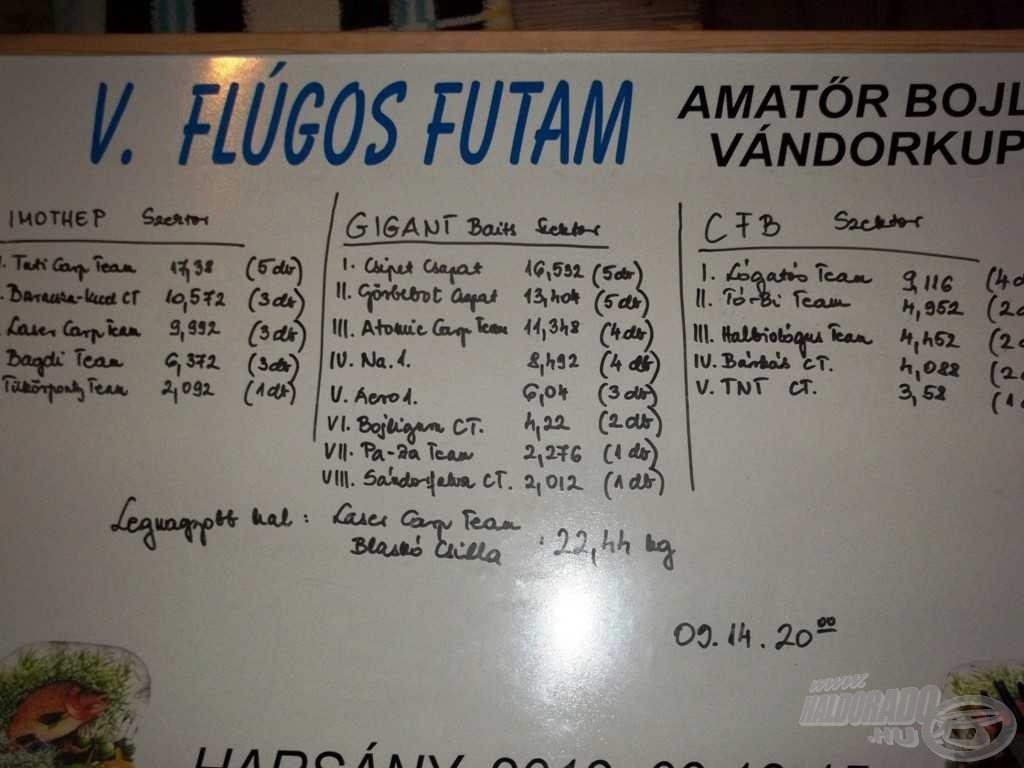 V. FLÚGOS FUTAM
AMATŐR BOJL
VÁNDORKUP
IMOTHEP Szektor
I. Tuti Carp Team 17,38 (5 db)
. Baracuda-kud CT 10,572 (3 db)
. Laser Carp Team 9,992 (3 db)
Bagdi Team 6,372 (3 db)
Tükörponty Team 2,092 (1 db)
GIGANT Baits Szektor
I. Csipet Csapat 16,592 (5 db)
II. Görbebot Csapat 13,404 (5 db)
III. Atomic Carp Team 11,348 (4 db)
IV. Na.1. 8,492 (4 db)
V. Aero1. 6,04 (3 db)
VI. Bojligum CT. 4,22 (2 db)
VII. Pa-Za Team 2,276 (1 db)
VIII. Sándorfalva CT. 2,012 (1 db)
CFB Szektor
I. Lógatós Team 9,116 (4 d
II. Tó-Bi Team 4,952 (2 d
III. Halbiológus Team 4,452 (2 d
IV. Bárkás CT. 4,088 (2 d
V. TNT CT. 3,58 (1 d
Legnagyobb hal: Laser Carp Team
Blaskó Csilla : 22,44 kg
09.14. 20 00
www.
HALDORADO
.HU